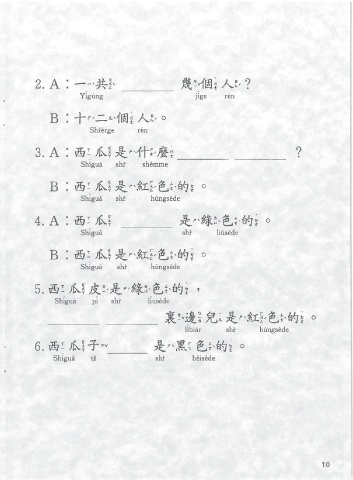 2. A：一共 ______ 幾個人？
Yígùng jǐge rén
B：十二個人。
Shŕèrge rén
3. A：西瓜是什麼______ ______？
Shīguā shr̀ shémme
B：西瓜是紅色的。
Shīguā shr̀ húngsède
4. A：西瓜______是綠色的。
Shīguā shr̀ liùsède
B：西瓜是紅色的。
Shīguā shr̀ húngsède
5. 西瓜皮是綠色的，
Shīguā pí shr̀ liùsède
______ ______裏邊兒是紅色的。
lǐbiār shr̀ húngsède
6. 西瓜子______是黑色的。
Shīguā tž shr̀ hēisède
10